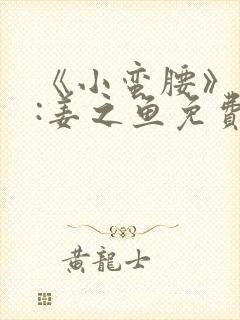 《小蛮腰》
:姜之鱼免費
黃龍士